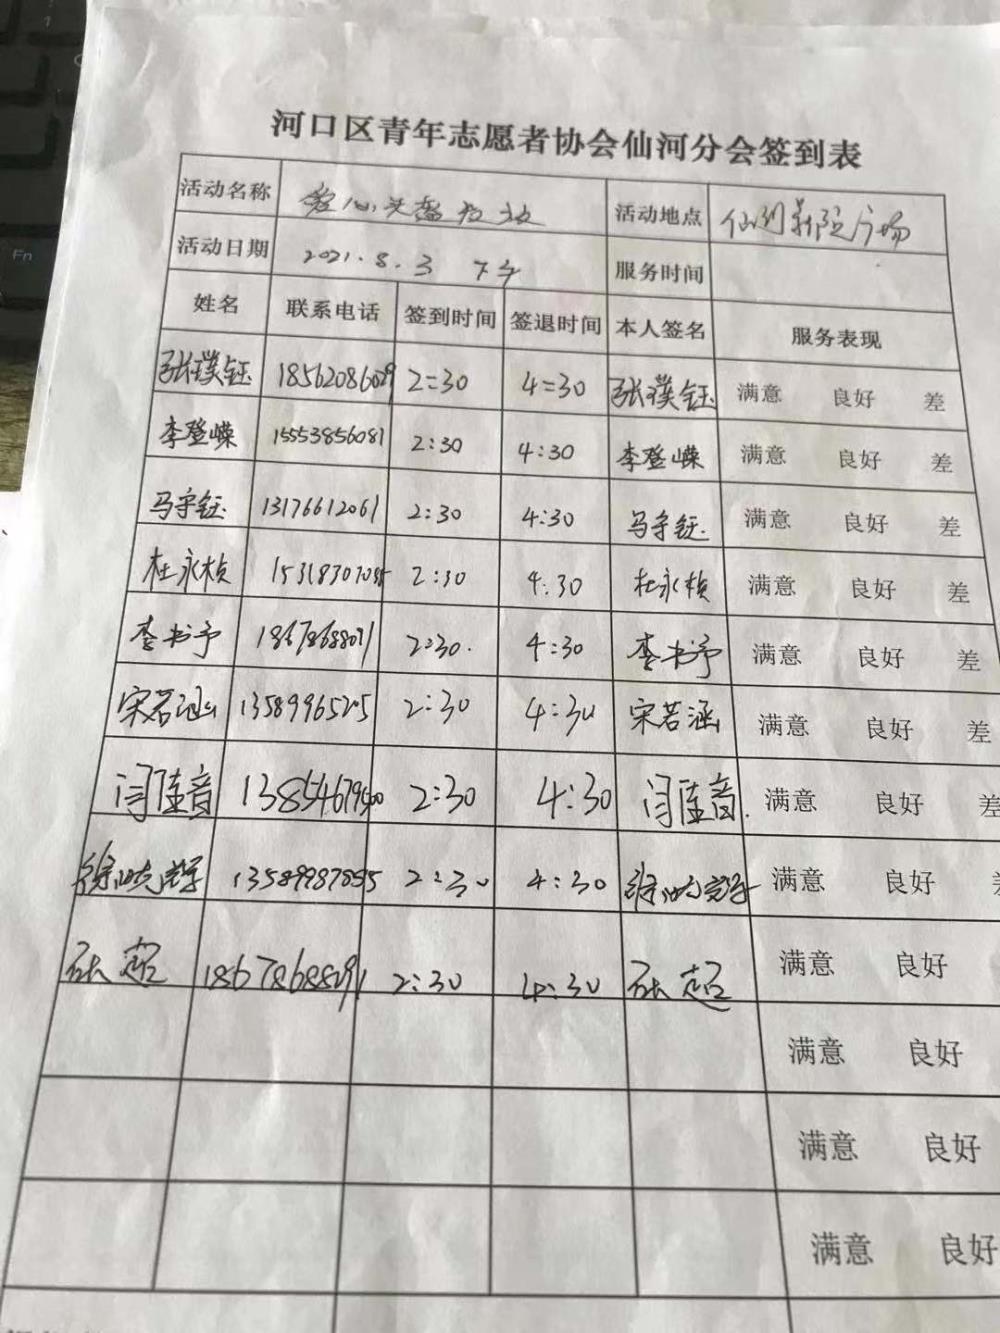 Fn
河口区青年志愿者协会仙河分会签到表
活动名称 爱心义 活动地点 仙河影院广场
活动日期 2021.8.3 下午 服务时间
姓名 联系电话 签到时间 签退时间 本人签名 服务表现
张璞钰 18562086029 2:30 4:30 张璞钰 满意 良好 差
李登嵘 15553856081 2:30 4:30 李登嵘 满意 良好 差
马宇钰 13176612061 2:30 4:30 马宇钰 满意 良好 差
杜永桢 2:30 4:30 杜永桢 满意 良好 差
李书予 2:30 4:30 李书予 满意 良好 差
宋若涵 13589965205 2:30 4:30 宋若涵 满意 良好 差
闫佳音 2:30 4:30 闫佳音 满意 良好 差
徐 13589987855 2:30 4:30 徐 满意 良好
张超 2:30 4:30 张超 满意 良好
满意 良好
满意 良好
满意 良好